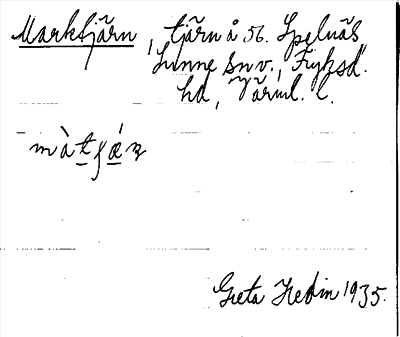 Marktjärn, tjärn å 56. Spelnäs
Sunne snv., Fryksd.
hd, Värml. l.
màtjǽɳ
Greta Hedin 1935.